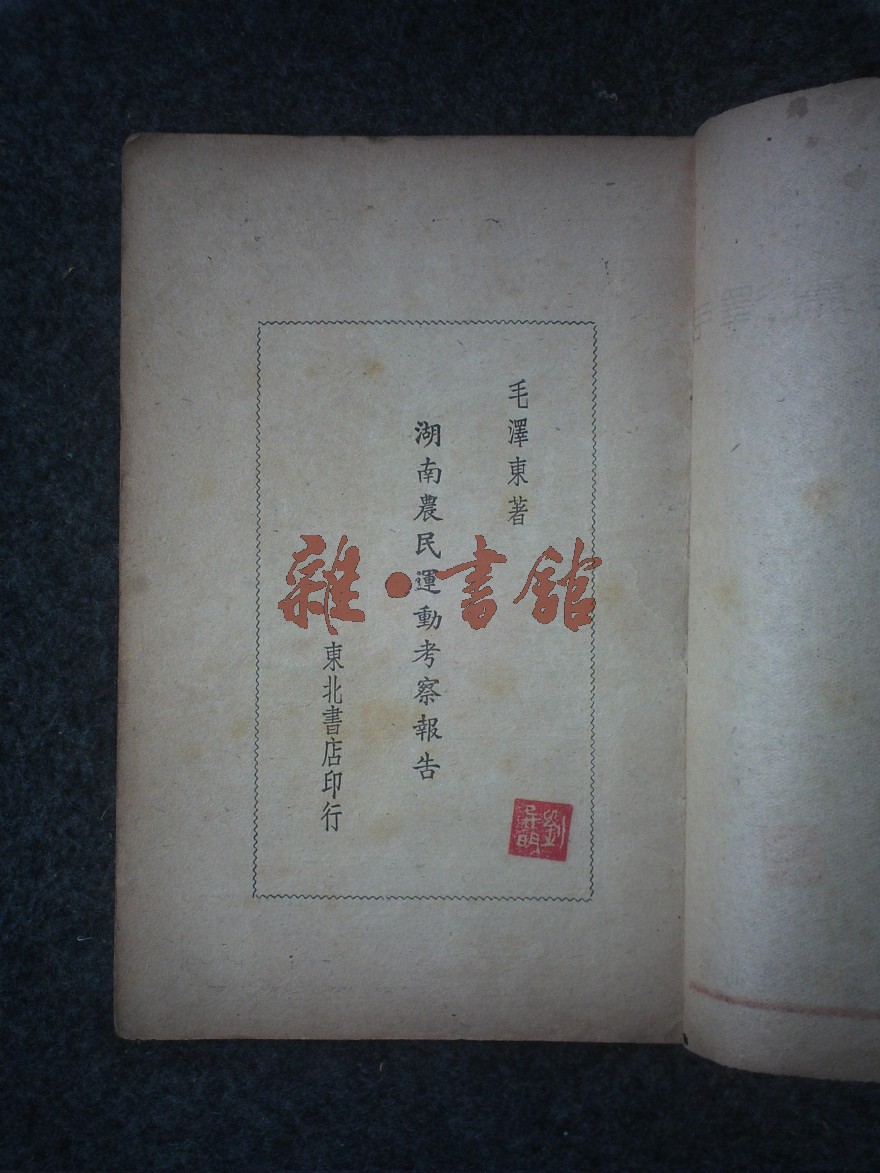 毛澤東著
湖南農民運動考察報告
東北書店印行
雜·書館
劉